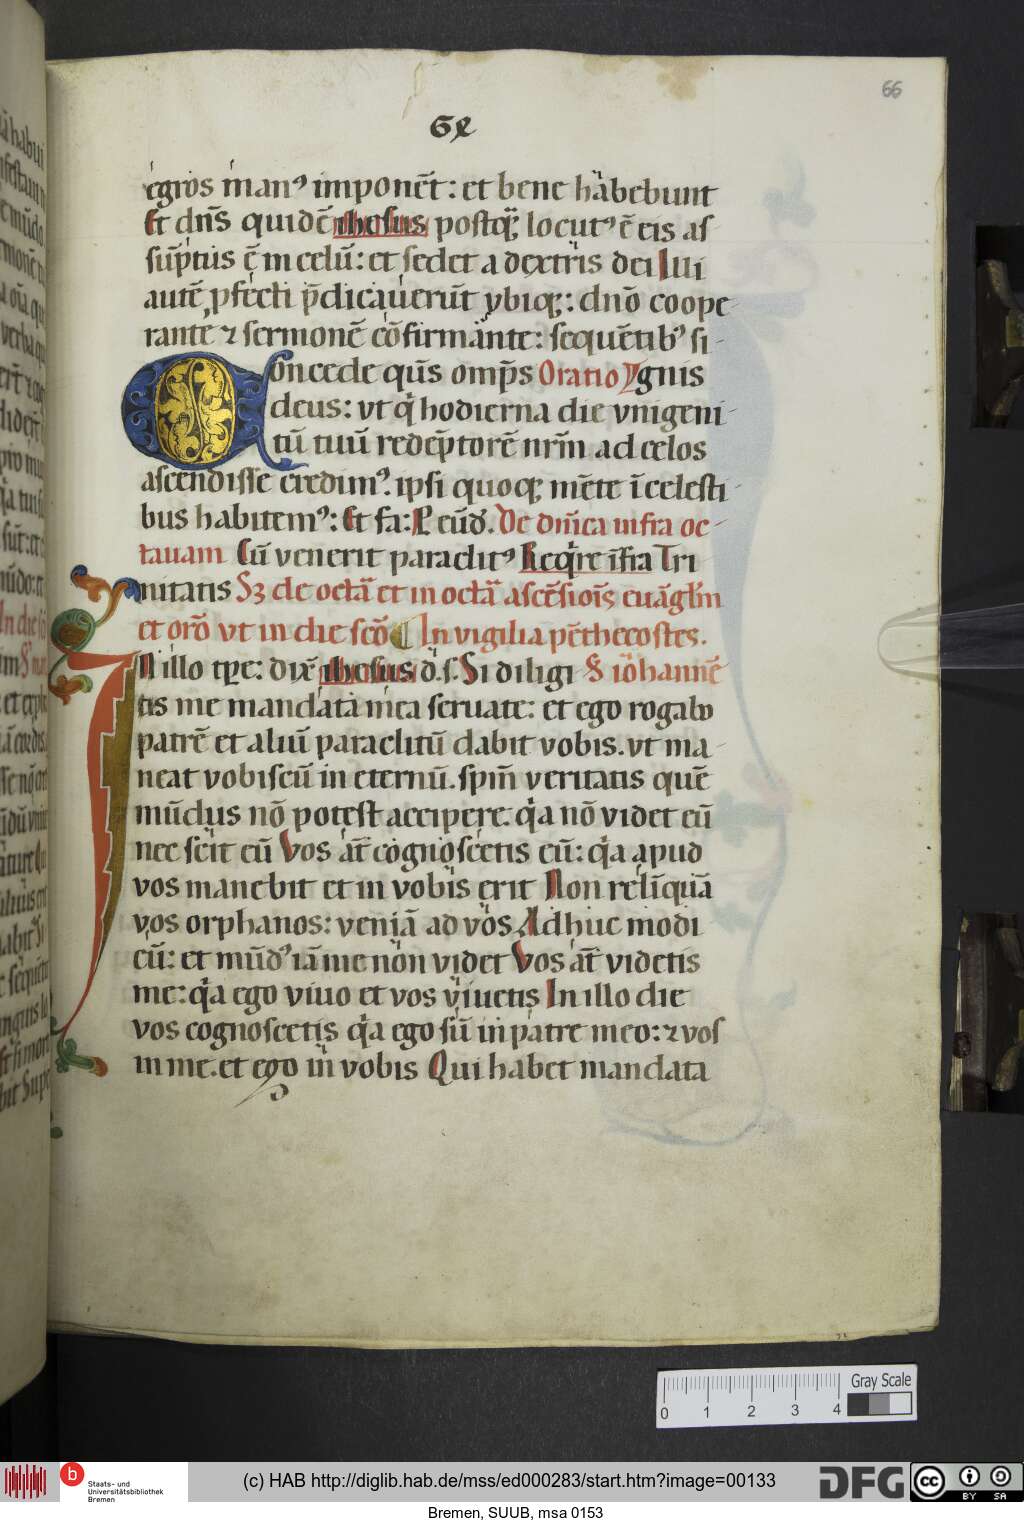 66
egros man⁹ imponēt: et bene habebunt
Et dn̄s quidē ihesus postq̄ꝫ locut⁹ ē eis as-
sūptus ē in celū: et sedet a dextris dei Illi
autē ꝓfecti p̄dicauerūt vbiqꝫ: dn̄o coope-
rante ⁊ sermonē cōfirmante: sequētib⁹ si-
Concede qūs omp̄s Oratio Ygnis
deus: vt q̇ hodierna die vnigeni-
tū tuū redēptorē nrm̄ ad celos
ascendisse credim⁹. ipsi quoqꝫ mēte ī celesti-
bus habitem⁹: Et fa: P eūd. De dnīca infra oc-
tauam Cū venerit paraclit⁹ Req̇re īfra Tri
nitatis Sꝫ de octā et in octā ascēsiois̄ euāglm̄
et orō vt in die scō In vigilia pēthecostes.
In illo tꝑe: dixē ihesus d̄. s. Si diligi S iōhannē
tis me mandata mea seruate: et ego rogabo
patrē et aliū paraclitū dabit vobis. vt ma-
neat vobiscū in eternū. spm̄ veritatis quē
mūdus nō potest accipere. q̇a nō videt eū
nec scit eū Vos āt cognoscetis eū: q̇a apud
vos manebit et in vobis erit Non relīquā
vos orphanos: veniā ad vos Adhuc modi
cū: et mūd⁹ iā me non videt Vos āt videtis
me: q̇a ego viuo et vos viuetis In illo die
vos cognoscetis q̇a ego sū in patre meo: ⁊ vos
in me. et ego in vobis Qui habet mandata
Gray Scale
0 1 2 3 4
b
Staats- und
Universitätsbibliothek
Bremen
(c) HAB http://diglib.hab.de/mss/ed000283/start.htm?image=00133
DFG
cc BY SA
Bremen, SUUB, msa 0153